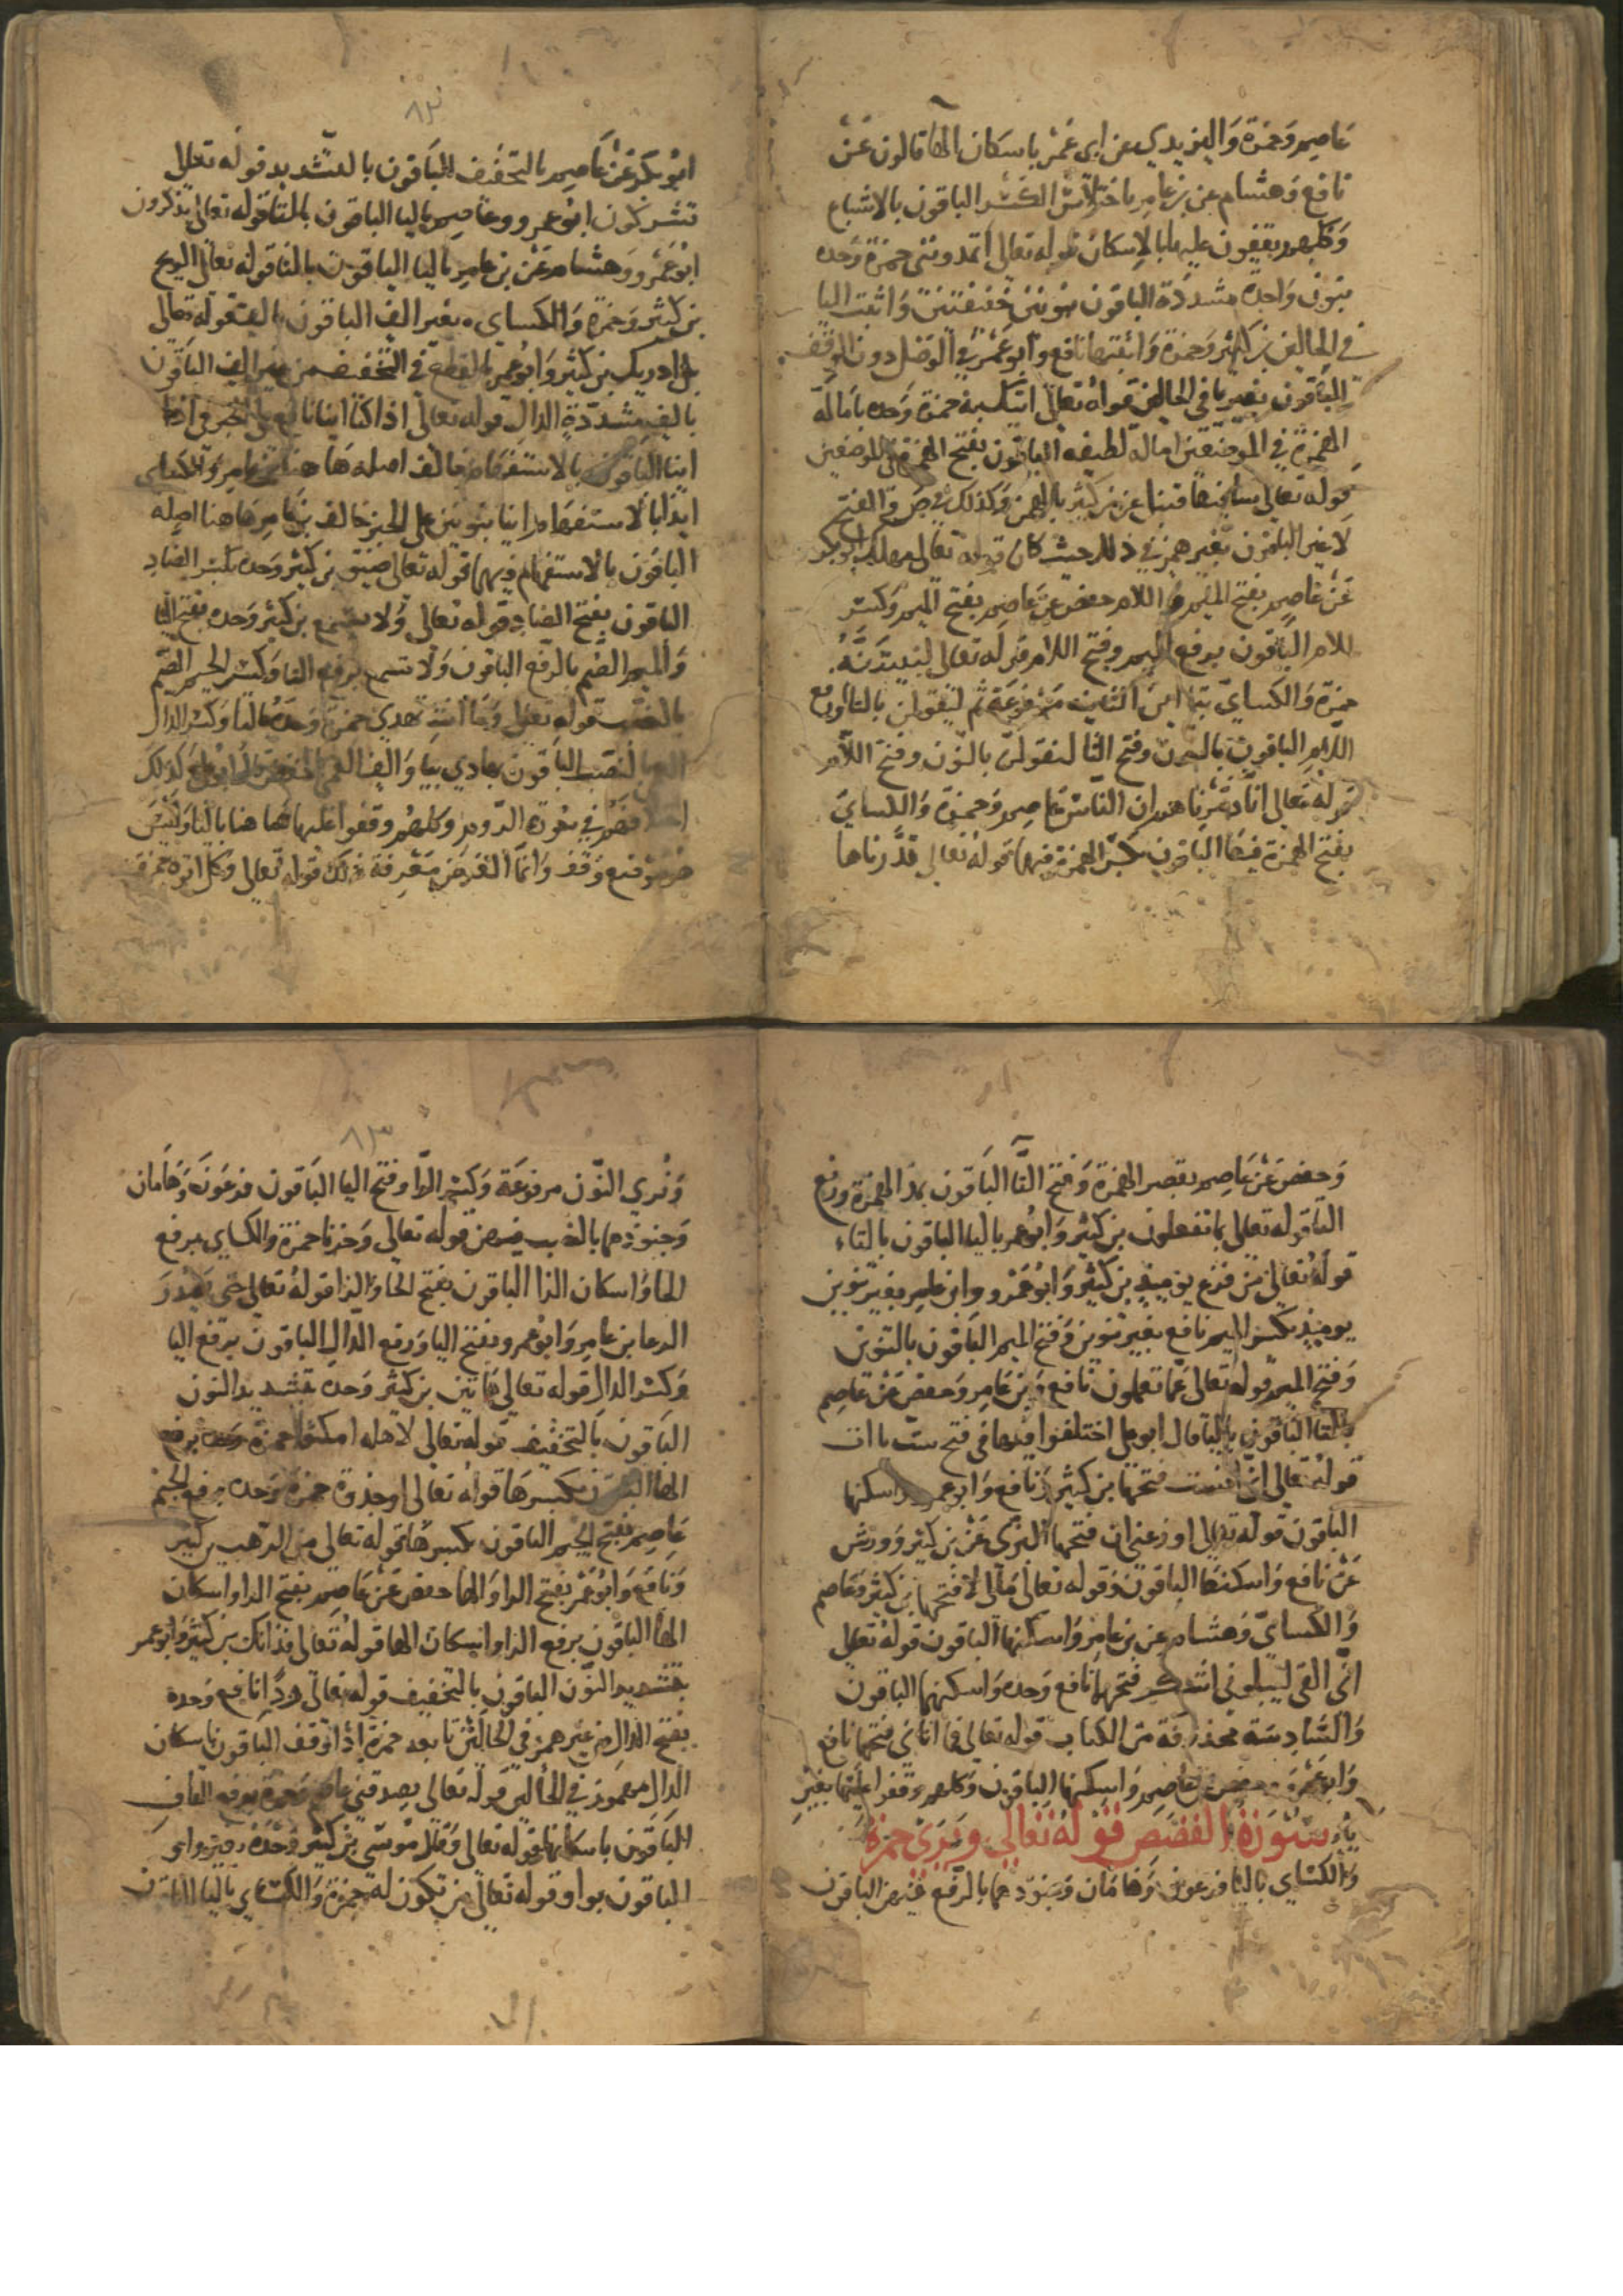 عاصم وحمزة واليزيدي عن ابي عمر باسكان الها قالون عن
نافع وهشام عن بن عامر باختلاس الكسر الباقون بالاشباع
وكلهم يقفون عليها بالاسكان قوله تعالى اتمدونني حمزة وحده
بنون واحدة مشددة الباقون بنونين خفيفتين واثبت اليا
في الحالين بن كثير وحمزة واثبتها نافع وابو عمر في الوصل دون الوقف
الباقون بغير يا في الحالين قوله تعالى اتيك به حمزة وحده بامالة
الهمزة في الموضعين امالة لطيفه الباقون بفتح الهمزة في الموضعين
قوله تعالى ساقيها قنبل عن بن كثير بالهمز وكذلك في ص والفتح
لا غير الباقون بغير همز في ذلك حيث كان قوله تعالى مهلك ابو بكر
عن عاصم بفتح الميم واللام حفص عن عاصم بفتح الميم وكسر
اللام الباقون برفع الميم وفتح اللام قوله تعالى لنبيتنه
حمزة والكساي بتا الثانية مرفوعة ثم ليقولن بالتا ورفع
اللام الباقون بالنون وفتح التا لنقولن بالنون وفتح اللام
قوله تعالى انا دمرناهم ان الناس عاصم وحمزة والكساي
بفتح الهمزة فيهما الباقون بكسر الهمزة فيهما قوله تعالى قدرناها
٨٢
ابو بكر عن عاصم بالتخفيف الباقون بالتشديد قوله تعالى
تشركون ابو عمرو وعاصم باليا الباقون بالتا قوله تعالى يذكرون
ابو عمرو وهشام عن بن عامر باليا الباقون بالتا قوله تعالى الريح
بن كثير وحمزة والكساي بغير الف الباقون بالف قوله تعالى
بل ادرك بن كثير وابو عمر بالقطع في التخفيف من غير الف الباقون
بالف مشددة الدال قوله تعالى اذا كنا اينا نافع على الخبر في اذا
اينا الباقون بالاستفهام خالف اصله هاهنا بن عامر والكساي
ايذا بالاستفهام اننا بنونين على الخبر خالف بن عامر هاهنا اصله
الباقون بالاستفهام فيهما قوله تعالى ضيق بن كثير وحده بكسر الضاد
الباقون بفتح الضاد قوله تعالى ولا يسمع بن كثير وحده بفتح اليا
والميم الصم بالرفع الباقون ولا تسمع برفع التا وكسر الميم الصم
بالنصب قوله تعالى وما انت تهدي حمزة وحده بالتا وكسر الدال
العمي بالنصب الباقون بهادي بيا والف العمي بالخفض قال ابو علي وكذلك
اختلافهم في سورة الروم وكلهم وقفوا عليها هاهنا باليا وليس
هو موضع وقف وانما الغرض معرفة ذلك قوله تعالى وكل اتوه حمزة
وحفص عن عاصم بقصر الهمزة وفتح التا الباقون بمد الهمزة ورفع
التا قوله تعالى بما تفعلون بن كثير وابو عمر باليا الباقون بالتاء
قوله تعالى من فزع يوميذ بن كثير وابو عمرو وابن عامر بغير تنوين
يوميذ بكسر الميم نافع بغير تنوين وفتح الميم الباقون بالتنوين
وفتح الميم قوله تعالى عما تعملون نافع وبن عامر وحفص عن عاصم
بالتا الباقون باليا قال ابو علي اختلفوا فيها في فتح ست يا ات
قوله تعالى اني انست فتحها بن كثير ونافع وابو عمرو واسكنها
الباقون قوله تعالى اوزعني ان فتحها البزي عن بن كثير وورش
عن نافع واسكنها الباقون وقوله تعالى مالي لا فتحها بن كثير وعاصم
والكساي وهشام عن بن عامر واسكنها الباقون قوله تعالى
اني القي ليبلوني ااشكر فتحهما نافع وحده واسكنهما الباقون
والسادسة محذوفة من الكتاب قوله تعالى فما اتاني فتحها نافع
وابو عمرو وحفص عن عاصم واسكنها الباقون وكلهم وقفوا عليها بغير
يا سورة القصص قوله تعالى ويري حمزة
والكساي باليا فرعون وهامان وجنودهما بالرفع فيهن الباقون
٨٣
ونري النون مرفوعة وكسر الرا وفتح اليا الباقون فرعون وهامان
وجنودهما بالنصب فيهن قوله تعالى وحزنا حمزة والكساي برفع
الحا واسكان الزا الباقون بفتح الحا والزا قوله تعالى حتى يصدر
الرعا بن عامر وابو عمرو بفتح اليا ورفع الدال الباقون برفع اليا
وكسر الدال قوله تعالى هاتين بن كثير وحده بتشديد النون
الباقون بالتخفيف قوله تعالى لاهله امكثوا حمزة وحده برفع
الها الباقون بكسرها قوله تعالى او جذوة حمزة وحده برفع الجيم
عاصم بفتح الجيم الباقون بكسرها قوله تعالى من الرهب بن كثير
ونافع وابو عمر بفتح الرا والها حفص عن عاصم بفتح الرا واسكان
الها الباقون برفع الرا واسكان الها قوله تعالى فذانك بن كثير وابو عمر
بتشديد النون الباقون بالتخفيف قوله تعالى ردا نافع وحده
بفتح الدال من غير همز في الحالين تابعه حمزة اذا وقف الباقون باسكان
الدال مهموز في الحالين قوله تعالى يصدقني عاصم وحمزة برفع القاف
الباقون باسكانها قوله تعالى وقال موسى بن كثير وحده بغير واو
الباقون بواو قوله تعالى من تكون له حمزة والكساي باليا الباقون